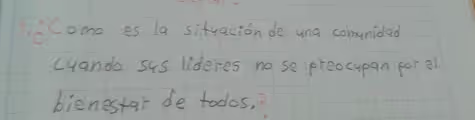 5. ¿Como es la situación de una comunidad
cuando sus lideres no se preocupan por el
bienestar de todos.?